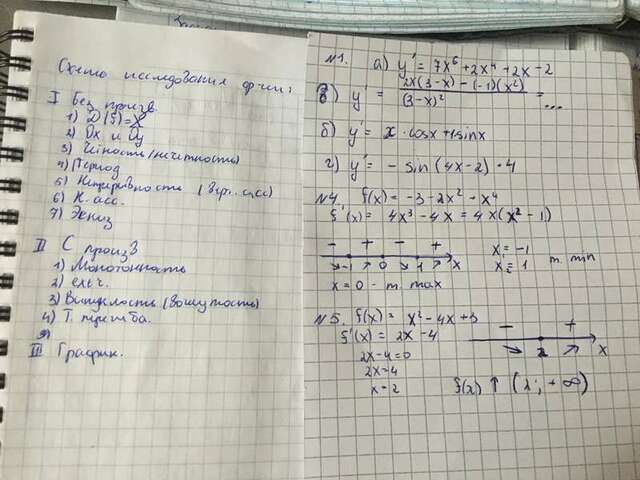 Схема исследования ф-ции:
I Без произв.
1) D(f)=X
2) Ox и Oy
3) Чётность (нечетность)
4) Период
5) Непрерывность
6) Н. асс.
7) Эскиз
II С произв
1) Монотонность
2) экстр.
3) Выпуклость (вогнутость)
4) Т. перегиба.
III График.
№1. а) y' = 7x⁶ + 2x⁴ + 2x - 2
в) y' = (2x(3-x) - (-1)(x²))/(3-x)² = ...
б) y' = x · cosx + 1 sinx
г) y' = - sin (4x-2) · 4
№4. f(x) = -3 - 2x² - x⁴
f'(x) = 4x³ - 4x = 4x(x² - 1)
- + - +
-1 0 1 x
x₁ = -1
x₂ = 1 т. min
x = 0 - т. max
№5. f(x) = x² - 4x + 3
f'(x) = 2x - 4
- +
2 x
2x - 4 = 0
2x = 4
x = 2
f(x) ↑ (2; +∞)